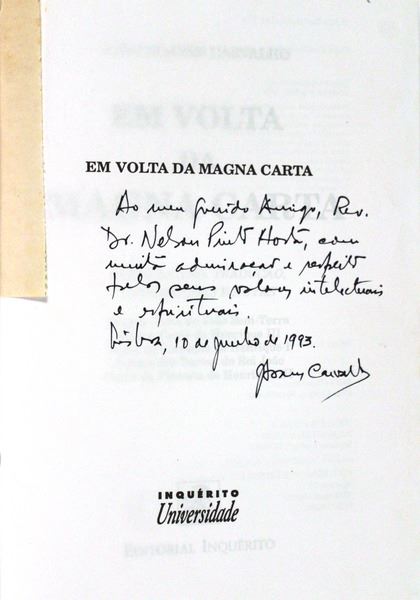 EM VOLTA DA MAGNA CARTA
Ao meu querido Amigo, Rev.
Dr. Nelson Pinto Horta, com
muita admiração e respeito
pelos seus valores intelectuais
e espirituais.
Lisboa, 10 de Junho de 1993.
Carvalho
INQUÉRITO
Universidade
EDITORIAL INQUÉRITO